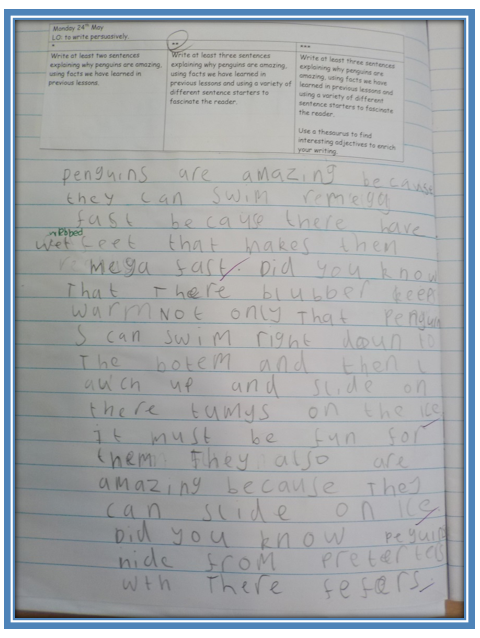 Monday 24th May
LO: to write persuasively.
*
Write at least two sentences
explaining why penguins are amazing,
using facts we have learned in
previous lessons.
**
Write at least three sentences
explaining why penguins are amazing,
using facts we have learned in
previous lessons and using a variety of
different sentence starters to
fascinate the reader.
***
Write at least three sentences
explaining why penguins are
amazing, using facts we have
learned in previous lessons and
using a variety of different
sentence starters to fascinate
the reader.
Use a thesaurus to find
interesting adjectives to enrich
your writing.
penguins are amazing because
they can swim
fast there have
feet that makes them
mega fast. Did you know
That There blubber keep
warm Not only That Penguin
s can swim right down to
The botem and then
up and slide on
there tumys on the ice
it must be fun for
them. They also are
amazing because They
can slide on ice
Did you know peguin
hide from
wth There